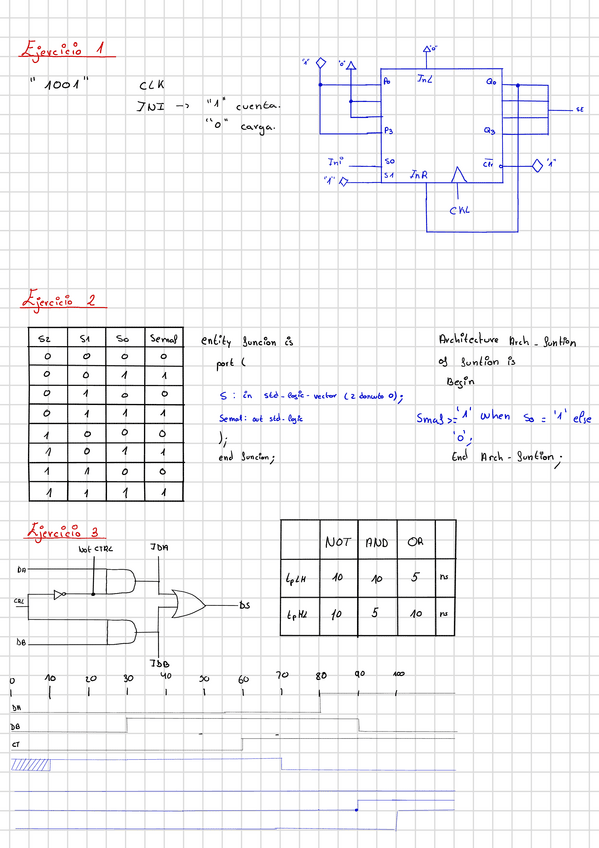 Ejercicio 1
" 1001"
CLK
INI -> "1" cuenta.
"0" carga.
"1" "0" "0"
P0 InL Q0
P3 Q3
SE
Ini S0
"1" S1 InR
Clr "1"
CKL
Ejercicio 2
S2 S1 S0 Semal
0 0 0 0
0 0 1 1
0 1 0 0
0 1 1 1
1 0 0 0
1 0 1 1
1 1 0 0
1 1 1 1
entity funcion is
port (
S : in std-logic-vector (2 donwto 0);
Semal: out std-logic
);
end funcion;
Architecture Arch - funtion
of funtion is
Begin
Smal >= '1' when S0 = '1' else
'0';
End Arch - funtion;
Ejercicio 3
Not CTRL IDA
DA
DS
DB
IDB
NOT AND OR
tpLH 10 10 5 ns
tpHL 10 5 10 ns
0 10 20 30 40 50 60 70 80 90 100
DA
DB
CT